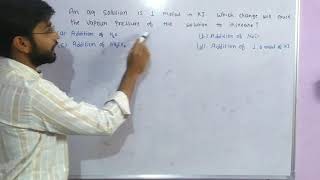 An aq solution is 1 molal in KI. Which change will cause
the vapour pressure of the solution to increase?
(a) Addition of H₂O (b) Addition of NaCl
(c) Addition of Na₂SO₄ (d) Addition of 1.0 molal of KI